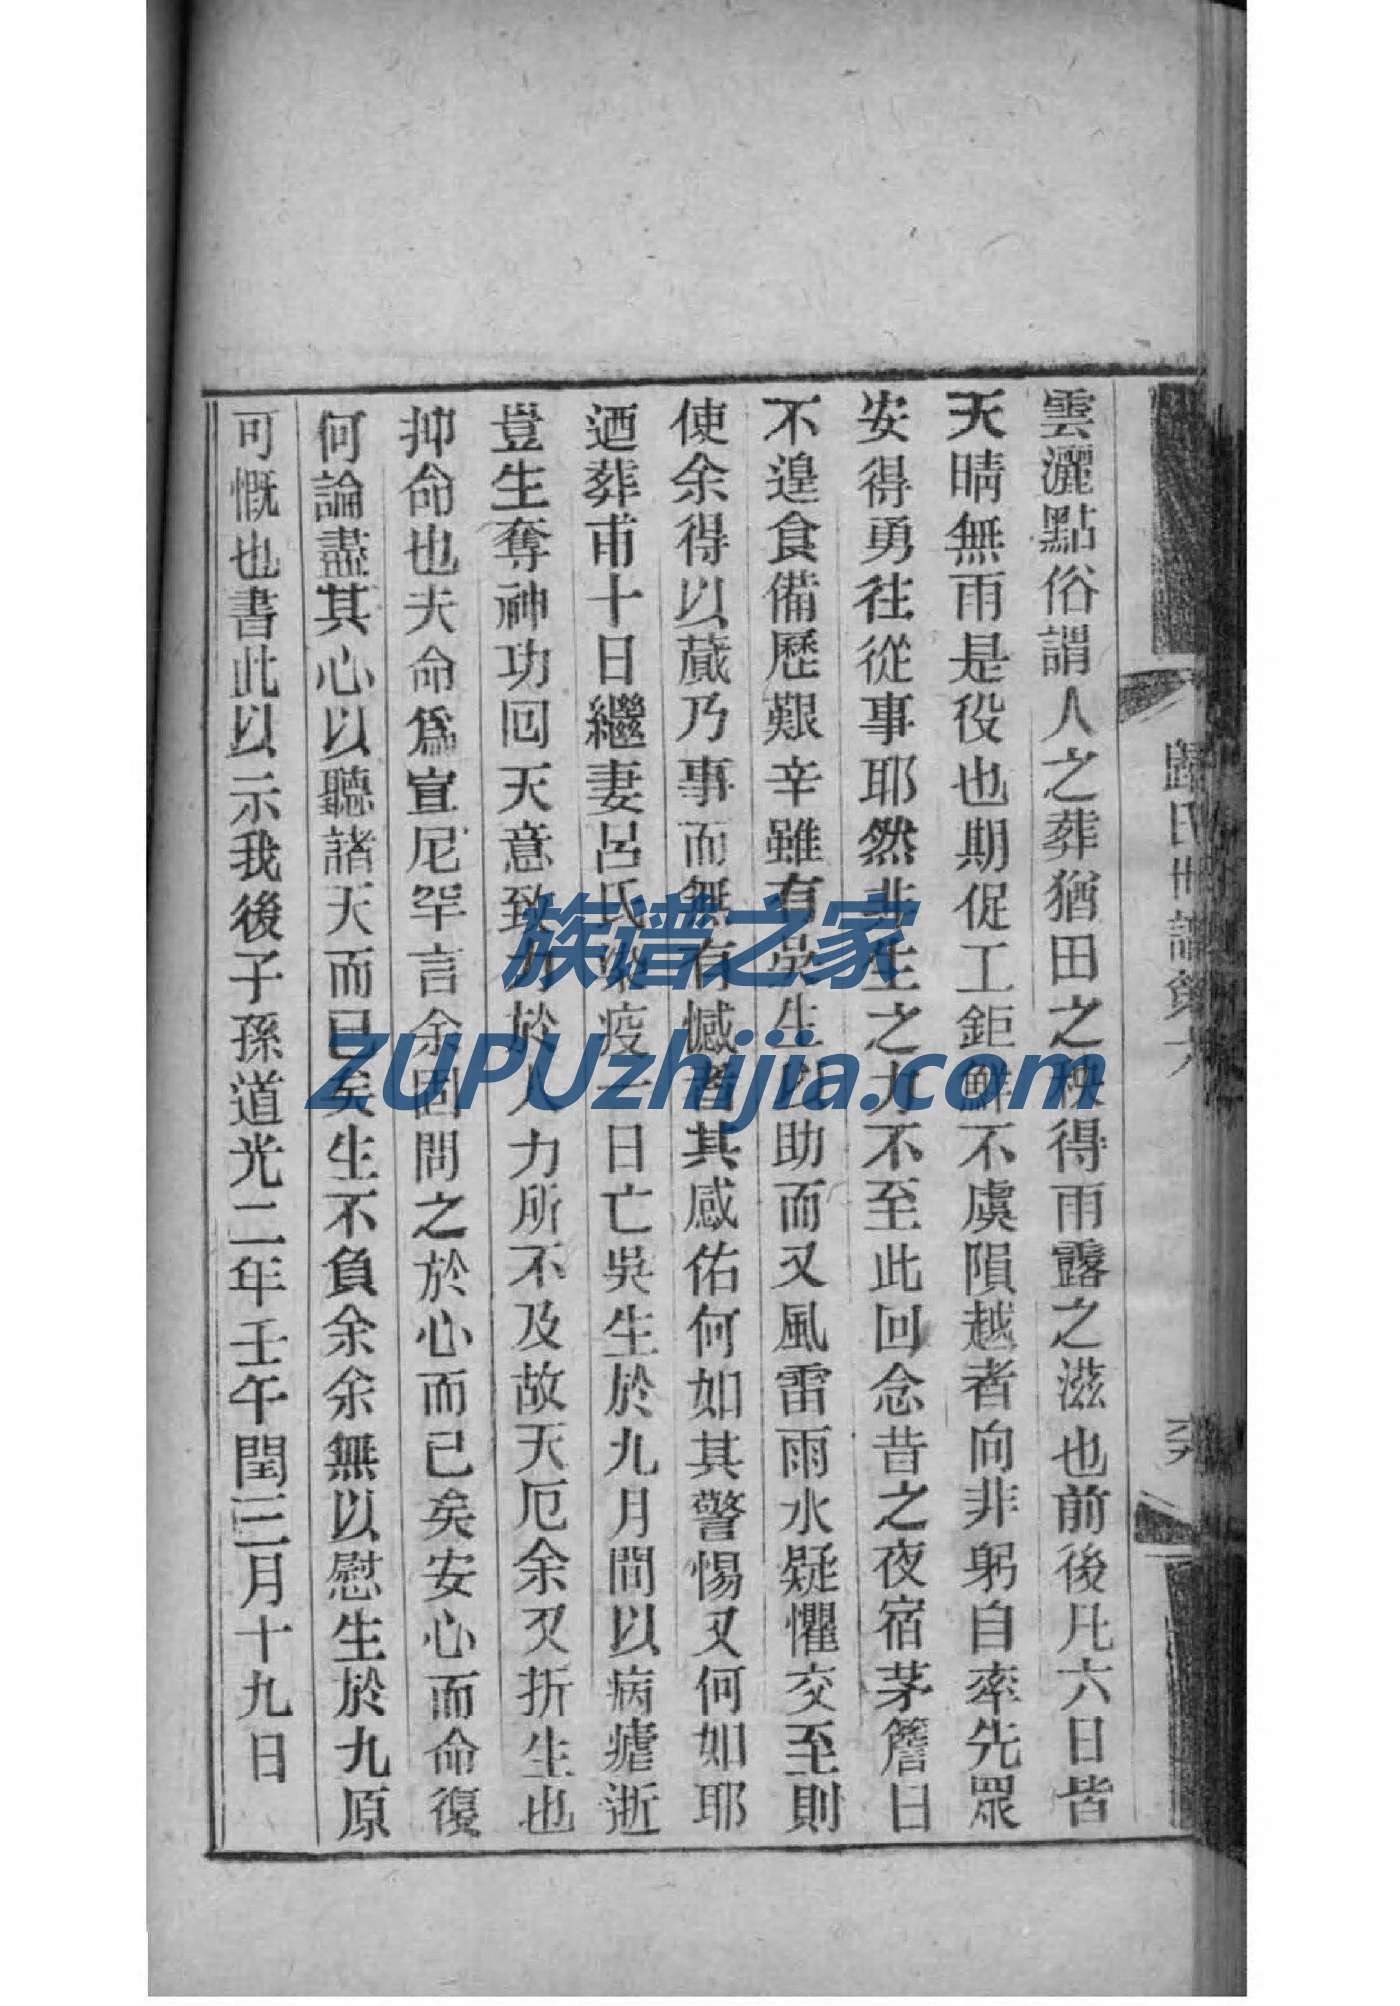 雲灑點俗謂人之葬猶田之秧得雨露之滋也前後凡六日皆
天晴無雨是役也期促工鉅鮮不虞隕越者向非躬自率先眾
安得勇往從事耶然非生之力不至此回念昔之夜宿茅簷日
不遑食備歷艱辛雖有吳生以助而又風雷雨水疑懼交至則
使余得以蕆乃事而無有憾者其感佑何如其警惕又何如耶
迺葬甫十日繼妻呂氏染疫一日亡吳生於九月間以病瘧逝
豈生奪神功回天意致力於人力所不及故天厄余又折生也
抑命也夫命為宣尼罕言余固問之於心而已矣安心而命復
何論盡其心以聽諸天而已矣生不負余余無以慰生於九原
可慨也書此以示我後子孫道光二年壬午閏三月十九日
歸氏世譜
族谱之家
ZUPUzhijia.com